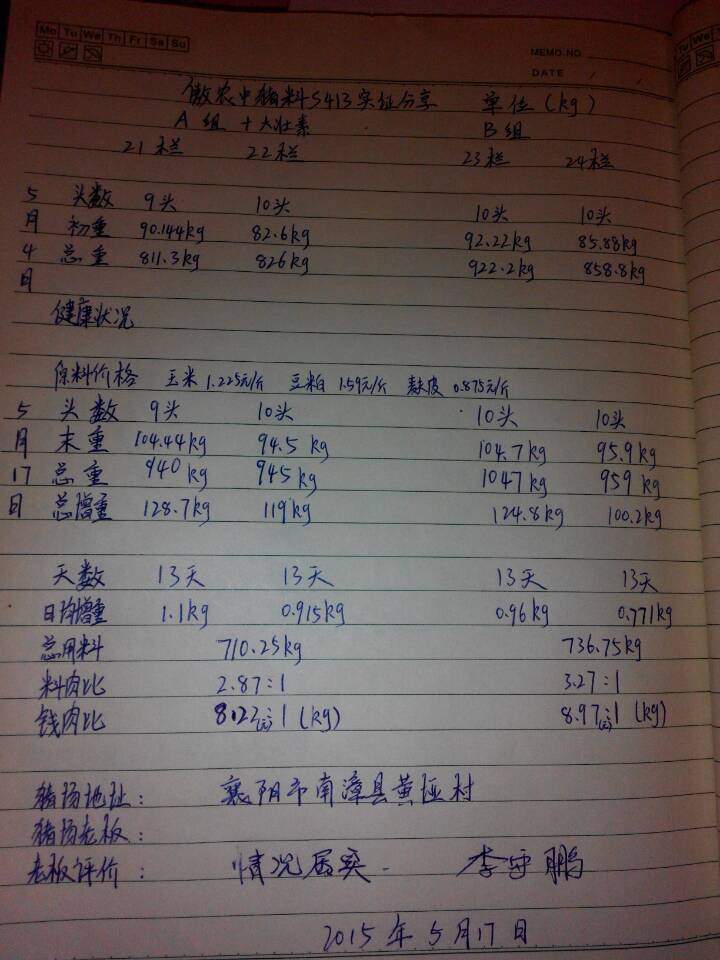 Mo Tu We Th Fr Sa Su
MEMO NO.
DATE / /
傲农中猪料S413实证分享 单位(kg)
A 组 +大壮素 B组
21栏 22栏 23栏 24栏
5月4日
头数 9头 10头 10头 10头
初重 90.144kg 82.6kg 92.22kg 85.88kg
总重 811.3kg 826kg 922.2kg 858.8kg
健康状况
原料价格 玉米1.225元/斤 豆粕1.59元/斤 麸皮0.875元/斤
5月17日
头数 9头 10头 10头 10头
末重 104.44kg 94.5kg 104.7kg 95.9kg
总重 940kg 945kg 1047kg 959kg
总增重 128.7kg 119kg 124.8kg 100.2kg
天数 13天 13天 13天 13天
日均增重 1.1kg 0.915kg 0.96kg 0.771kg
总用料 710.25kg 736.75kg
料肉比 2.87:1 3.27:1
钱肉比 8.123元:1(kg) 8.97元:1(kg)
猪场地址: 襄阳市南漳县黄垭村
猪场老板:
老板评价: 情况属实. 李守鹏
2015年5月17日
Tu We